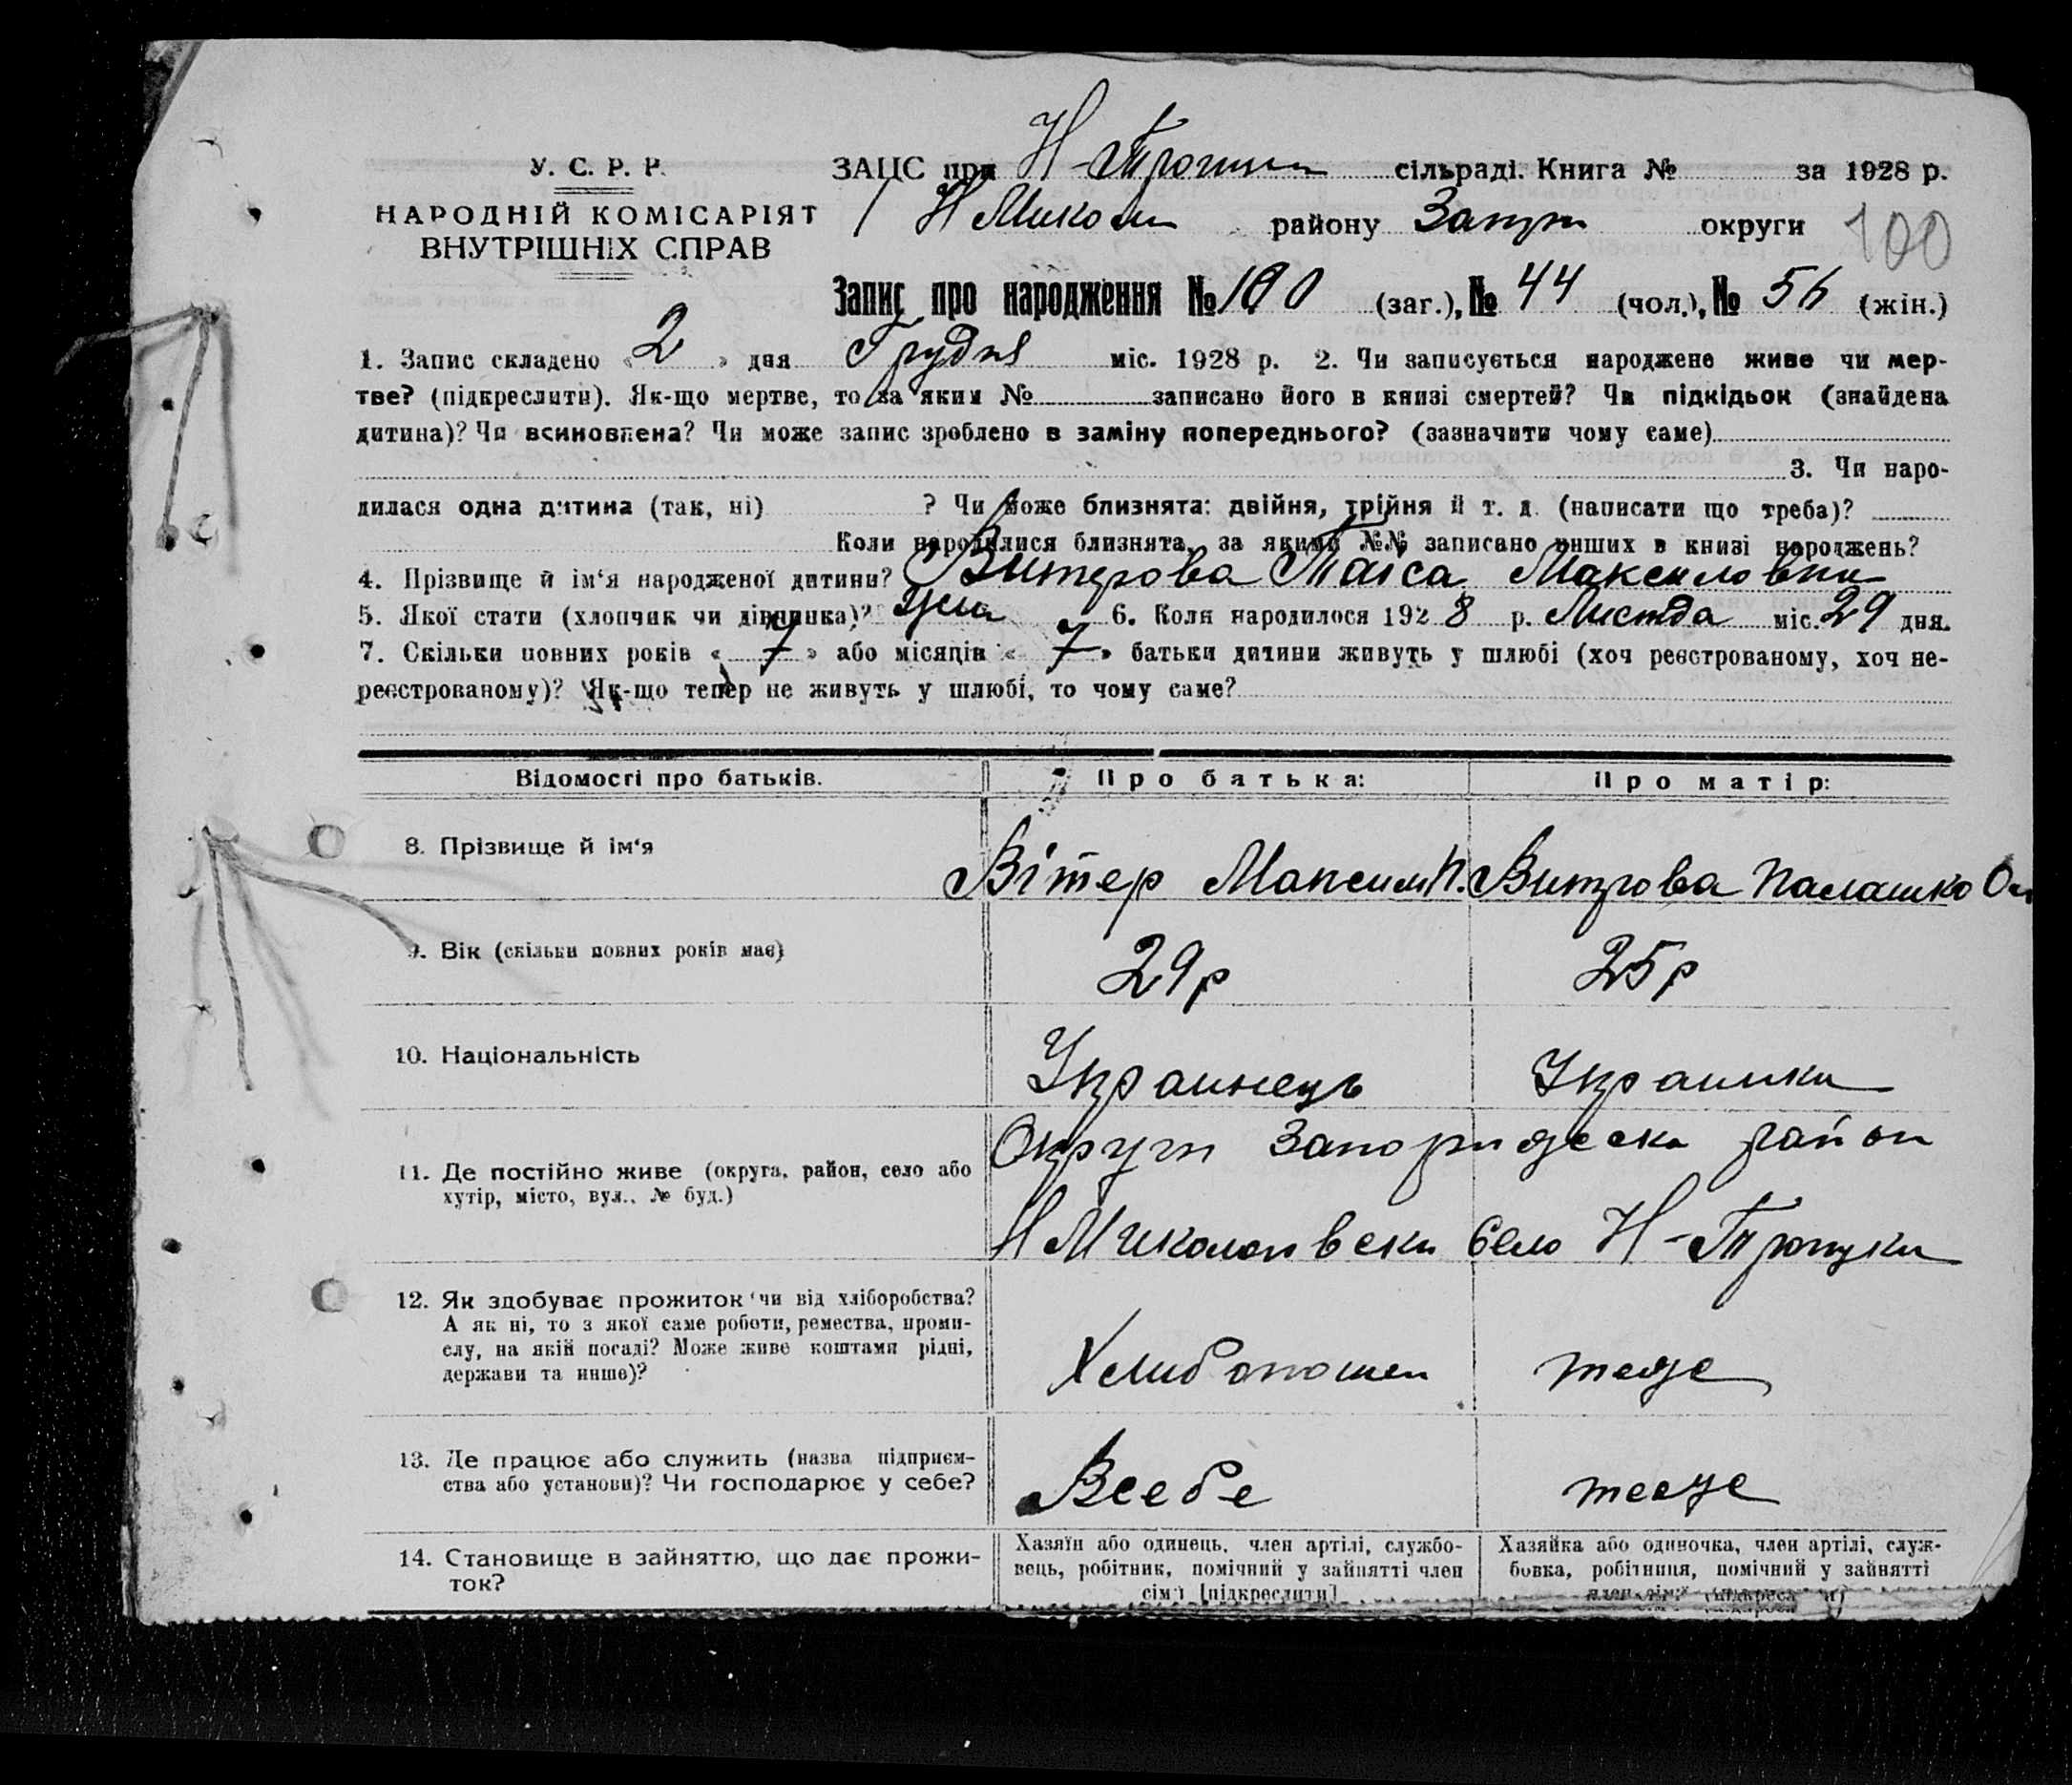 У. С. Р. Р.
НАРОДНІЙ КОМІСАРІЯТ
ВНУТРІШНІХ СПРАВ
ЗАЦС при Н-Троицк сільраді. Книга № за 1928 р.
Н Микол району Запор округи 100
Запис про народження № 100 (заг.), № 44 (чол.), № 56 (жін.)
1. Запис складено « 2 » дня Грудня міс. 1928 р. 2. Чи записується народжене живе чи мер-
тве? (підкреслити). Як-що мертве, то за яким № записано його в книзі смертей? Чи підкідьок (знайдена
дитина)? Чи всиновлена? Чи може запис зроблено в заміну попереднього? (зазначити чому саме)
3. Чи наро-
дилася одна дитина (так, ні) ? Чи може близнята: двійня, трійня й т. д. (написати що треба)?
Коли народилися близнята, за якими №№ записано инших в книзі народжень?
4. Прізвище й ім‘я народженої дитини? Витрова Таіса Максимовна
5. Якої стати (хлопчик чи дівчинка)? 6. Коли народилося 192 8 р. Листда міс. 29 дня.
7. Скільки повних років « 7 » або місяців « 7 » батьки дитини живуть у шлюбі (хоч реєстрованому, хоч не-
реєстрованому)? Як-що тепер не живуть у шлюбі, то чому саме?
Відомості про батьків. Про батька: Про матір:
8. Прізвище й ім‘я Вітер Максим П. Витрова Палашка
9. Вік (скільки повних років має) 29 р 25 р
10. Національність Украинець Украинка
11. Де постійно живе (округа, район, село або
хутір, місто, вул., № буд.)
Округи Запоридеска район
Н Миколаивски Село Н-Троицки
12. Як здобуває прожиток чи від хліборобства?
А як ні, то з якої саме роботи, ремества, проми-
слу, на якій посаді? Може живе коштами рідні,
держави та инше)?
Хлибопашен теже
13. Де працює або служить (назва підприєм-
ства або установи)? Чи господарює у себе?
Всебе теже
14. Становище в зайняттю, що дає прожи-
ток?
Хазяїн або одинець, член артілі, службо-
вець, робітник, помічний у зайнятті член
сім‘ї [підкреслити]
Хазяйка або одиночка, член артілі, служ-
бовка, робітниця, помічний у зайнятті
член сім‘ї